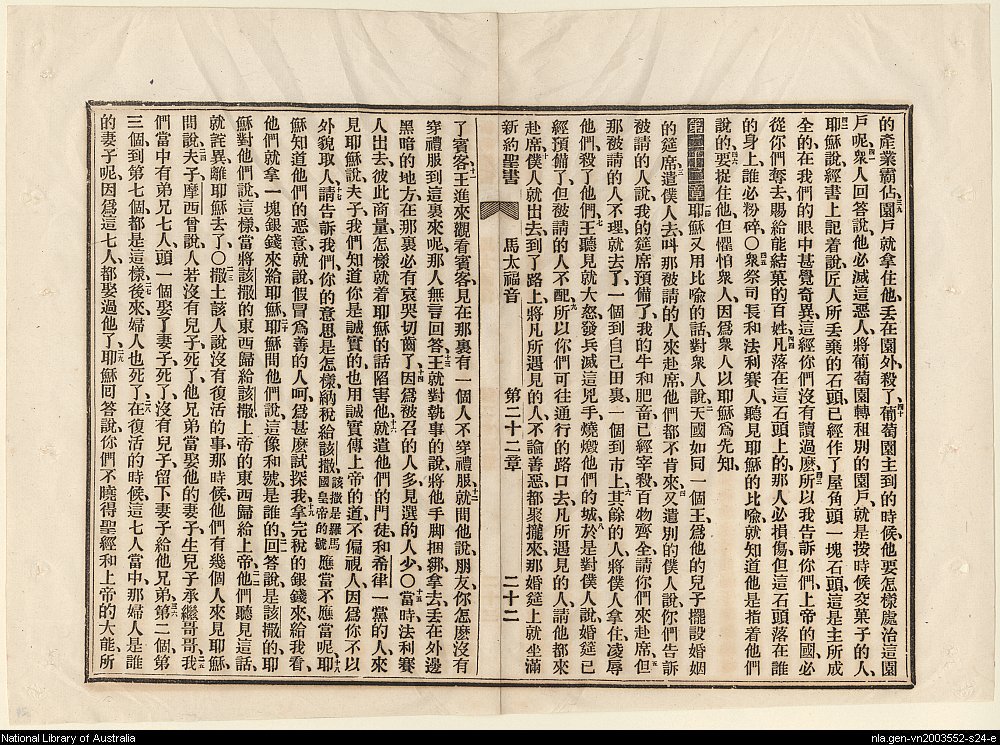 的產業霸佔、園戶就拿住他、丢在園外殺了、葡萄園主到的時候、他要怎樣處治這園
戶呢、衆人回答說、他必滅這惡人、將葡萄園轉租別的園戶、就是按時候交菓子的人、
耶穌說、經書上記着說、匠人所丢棄的石頭、已經作了屋角頭一塊石頭、這是主所成
全的、在我們的眼中甚覺奇異、這經你們沒有讀過麽、所以我告訴你們、上帝的國、必
從你們奪去、賜給能結菓的百姓、凡落在這石頭上的、那人必損傷、但這石頭落在誰
的身上、誰必粉碎○衆祭司長和法利賽人、聽見耶穌的比喩、就知道他是指着他們
說的、要捉住他、但懼怕衆人、因爲衆人以耶穌爲先知、
第二十二章 耶穌又用比喩的話對衆人說、天國如同一個王、爲他的兒子擺設婚姻
的筵席、遣僕人去叫那被請的人來赴席、他們都不肯來、又遣別的僕人說、你們告訴
被請的人說、我的筵席預備了、我的牛和肥畜已經宰殺、百物齊全、請你們來赴席、但
那被請的人不理就去了、一個到自己田裏、一個到市上、其餘的人、將僕人拿住、凌辱
他們、殺了他們、王聽見就大怒、發兵滅這兇手、燒燬他們的城、於是對僕人說、婚筵已
經預備了、但被請的人不配、所以你們可往通行的路口去、凡所遇見的人、請他都來
赴席、僕人就出去到了路上、將凡所遇見的人、不論善惡都聚攏來、那婚筵上就坐滿
新約聖書 馬太福音 第二十二章 二十二
了賓客、王進來觀看賓客、見在那裏有一個人不穿禮服、就問他說、朋友、你怎麽沒有
穿禮服到這裏來呢、那人無言回答、王就對執事的說、將他手脚捆綁拿去、丢在外邊
黑暗的地方、在那裏必有哀哭切齒了、因爲被召的人多、見選的人少○當時法利賽
人出去彼此商量、怎樣就着耶穌的話陷害他、就遣他們的門徒和希律一黨的人、來
見耶穌說、夫子、我們知道你是誠實的、也用誠實傳上帝的道、不偏視人、因爲你不以
外貌取人、請告訴我們、你的意思是怎樣、納稅給該撒該撒是羅馬國皇帝的號應當不應當呢、耶
穌知道他們的惡意、就說、假冒爲善的人呵、爲甚麽試探我、拿完稅的銀錢來給我看、
他們就拿一塊銀錢來給耶穌、耶穌問他們說、這像和號是誰的、回答說、是該撒的、耶
穌對他們說、這樣當將該撒的東西歸給該撒、上帝的東西歸給上帝、他們聽見這話、
就詫異離耶穌去了○撒土該人說沒有復活的事、那時候他們有幾個人來見耶穌、
問說、夫子、摩西曾說、人若沒有兒子死了、他兄弟當娶他的妻子、生兒子承繼哥哥、我
們當中有弟兄七人、頭一個娶了妻子死了、沒有兒子、留下妻子給他兄弟、第二個、第
三個、到第七個都是這樣、後來婦人也死了、在復活的時候、這七人當中、那婦人是誰
的妻子呢、因爲這七人都娶過他了、耶穌回答說、你們不曉得聖經和上帝的大能、所
National Library of Australia
nla.gen-vn2003552-s24-e